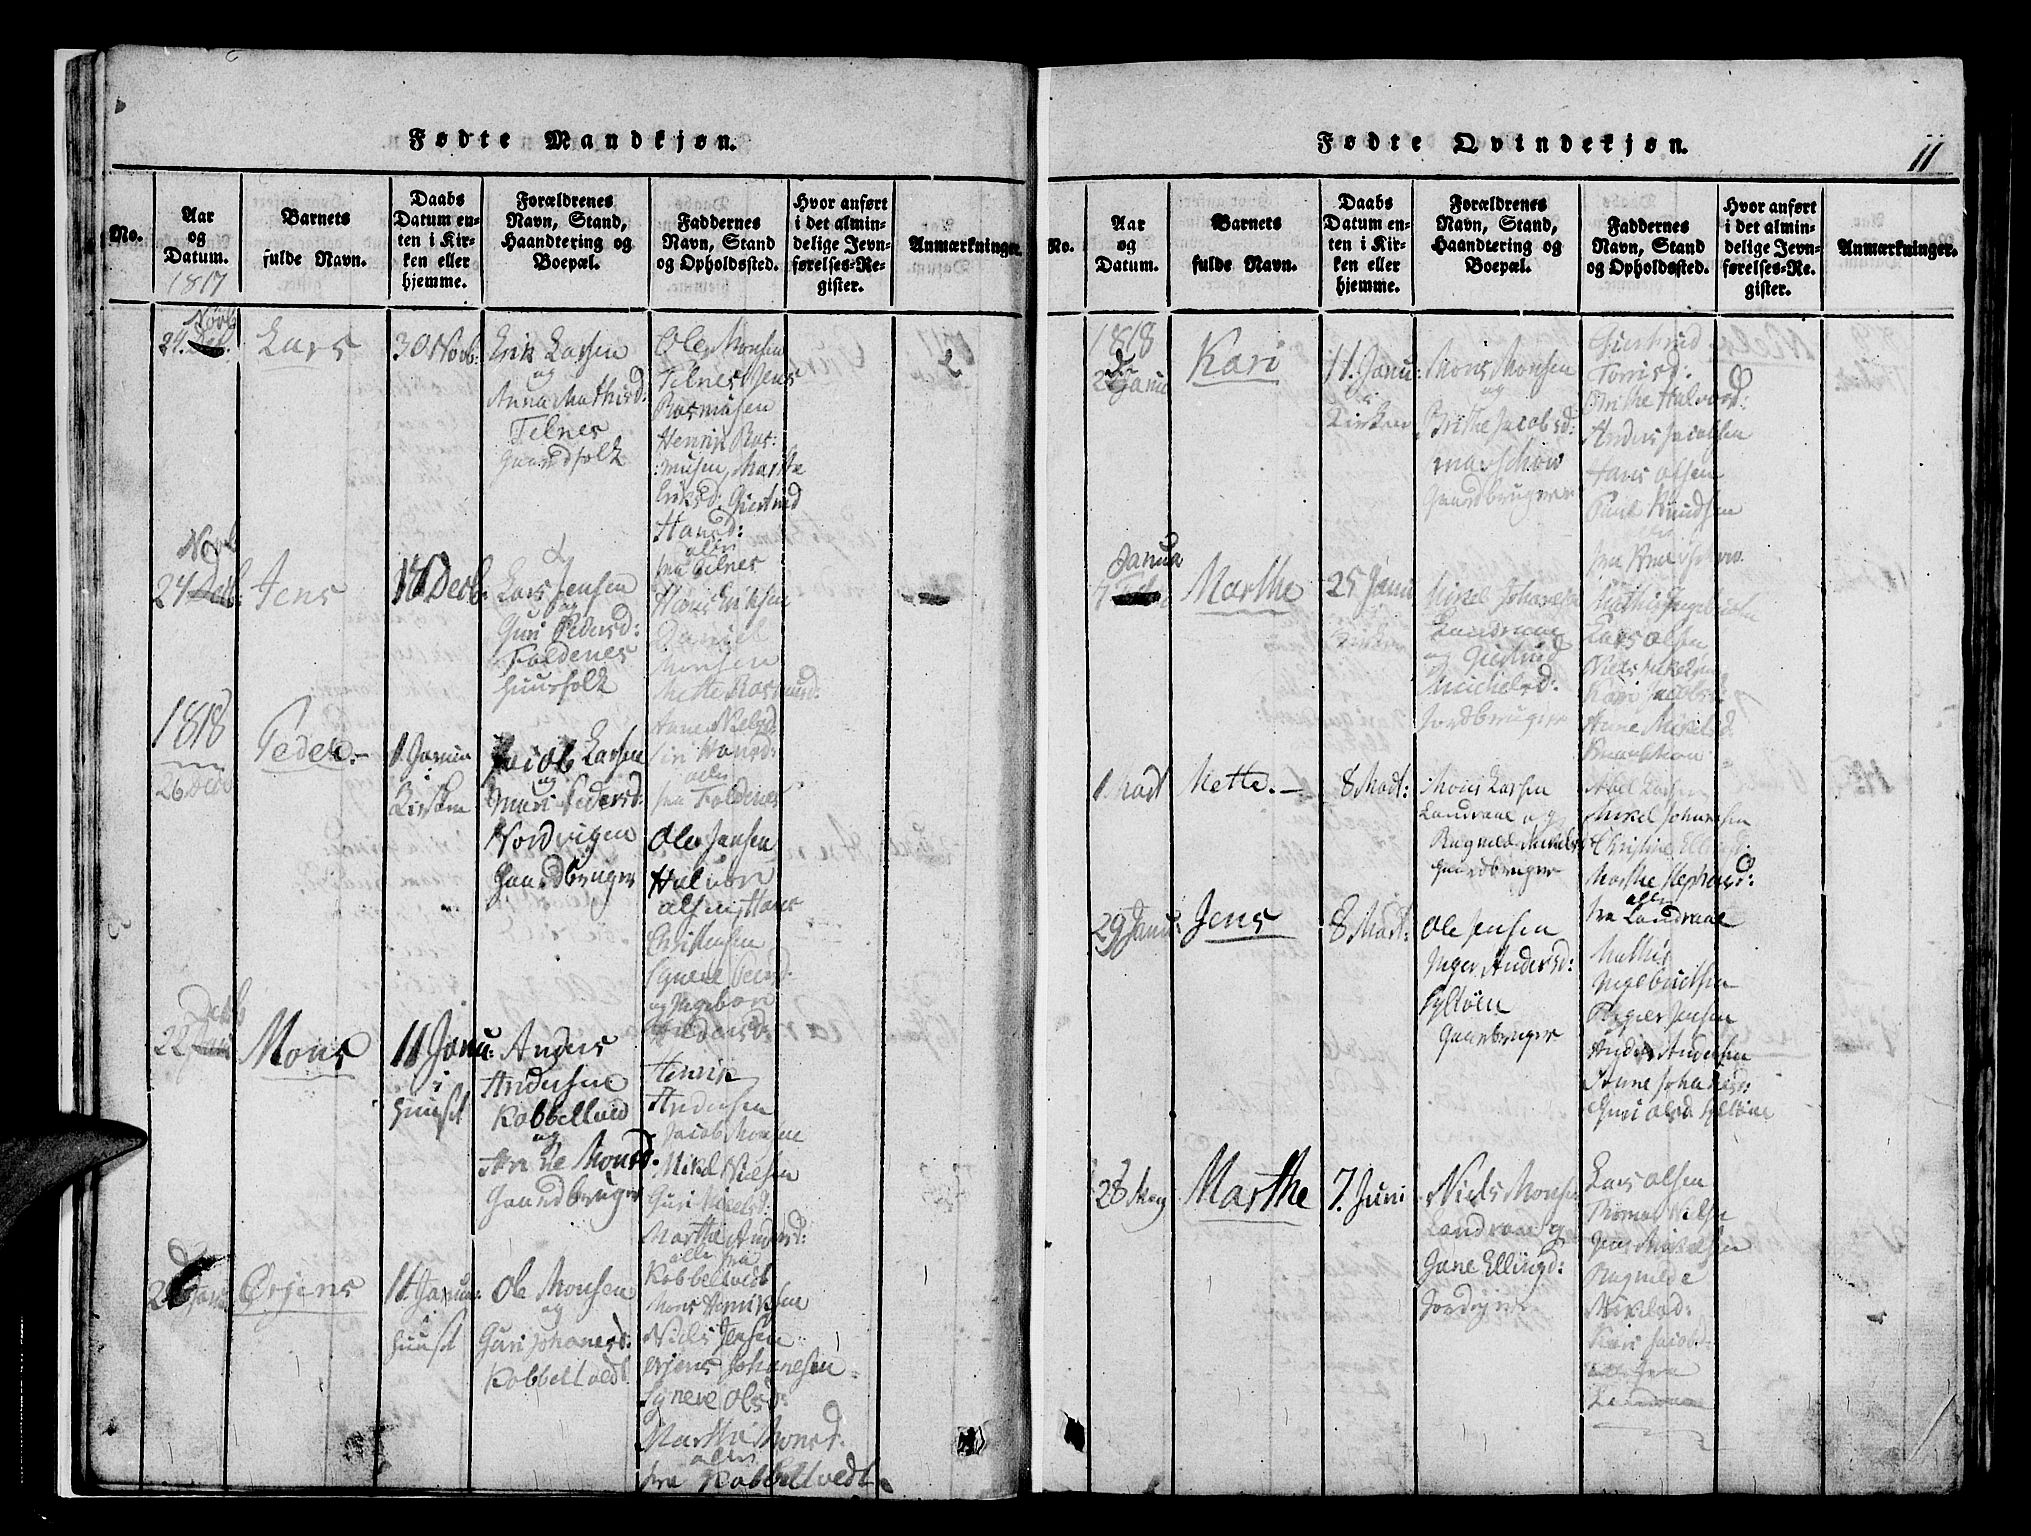 Fødte Mandkjøn.
No.
Aar
og
Datum.
1817
Barnets
fulde Navn.
Daabs
Datum en-
ten i Kir-
ken eller
hjemme.
Forældrenes
Navn, Stand,
Haandtering og
Boepæl.
Faddernes
Navn, Stand
og Opholdssted.
Hvor anført
i det almin-
delige Jevn-
førelses-Re-
gister.
Anmærkninger.
Novb
24
Lars
30 Novb:
Erik Larsen
og
Anna Mathisd:
Telnes
Gaardfolk
Ole Monsen
Telnes Jens
Rasmusen
Henrik Ras:
:musen, Marthe
Eriksd: Giertrud
Hansd:
alle
fra Telnes
Novb
24
Jens
Decb:
Lars Jensen
og
Guri Pedersd:
Foldenes
Huusfolk
Hans Eriksen
Daniel
Monsen
Mette Rasmusd:
Anne Nielsd
Siri Hansd:
alle
fra Foldenes
1818
26 Decb
Peder.
1 Janua
i
Kirken
Jacob Larsen
og
Mari Pedersd:
Nordvigen
Gaardbruger
Ole Jensen
Halvor
Olsen, Hans
Christensen
Syneve Peersd.
og Ingebor
Decb
22
Mons
11 Janu:
i
Huuset
Anders
Andersen
Kobbeltved
og
Anne Monsd.
Gaardbruger
Henrik
Andersen
Jacob Monsen
Mikel Nielsen
Guri Nielsd:
Marthe Andersd:
alle fra
Kobbeltvedt
Janu:
Ørjens
11 Janua:
Huuset
Ole Monsen
og
Guri Johanesd:
Kobbeltvedt
Mons Henriksen
Niels Jensen
Ørjens Johanesen
Syneve Olsd:
Marthe Monsd:
alle
fra Kobbeltvedt
Fødte Qvindekjøn.
11
No.
Aar
og
Datum.
Barnets
fulde Navn.
Daabs
Datum en-
ten i Kir-
ken eller
hjemme.
Forældrenes
Navn, Stand,
Haandtering og
Boepæl.
Faddernes
Navn, Stand
og Opholdssted.
Hvor anført
i det almin-
delige Jevn-
førelses-Re-
gister.
Anmærkninger.
1818
Janu
Kari
11. Janu:
i
Kirken
Mons Monsen
og
Brithe Jacobsd:
Marschow
Gaardbruger
Giertrud
Torrisd:
Brithe Halvorsd:
Anders Jacobsen
Hans Olsen
Paul Knudsen
Janua
Marthe
25 Janu
Kirken
Mikel Johanesen
Landraae
og Giertrud
Michelsd:
Jordbruger
Mathis Ingebrictsen
Lars Olsen
Niels Mikelsen
Kari Jacobsd:
Anne Mikelsd
1 Mart
Mette.
8 Mart:
Mons Larsen
Landraae og
Ragnild Mikelsd
Gaardbruger
Abel Larsen
Mikel Johanesen
Christine Ellingsd:
Marthe Stephensd:
alle
fra Landraae
29 Janu:
Jens
8 Mart:
Ole Jensen
Inger Andersd:
Syltøen
Gaardbruger
Mathis
Ingebrictsen
Jensen
Anders Andersen
Anne Johanesd:
Guri Olsd Syltøen
28 May
Marthe
7. Juni
Niels Monsen
Landraae og
Jane Ellingd:
Lars Olsen
Thomas Nilsen
Jens Mikelsen
Ragnilde
Mikelsd:
Kari Jacobsd:
alle fra
Landraae